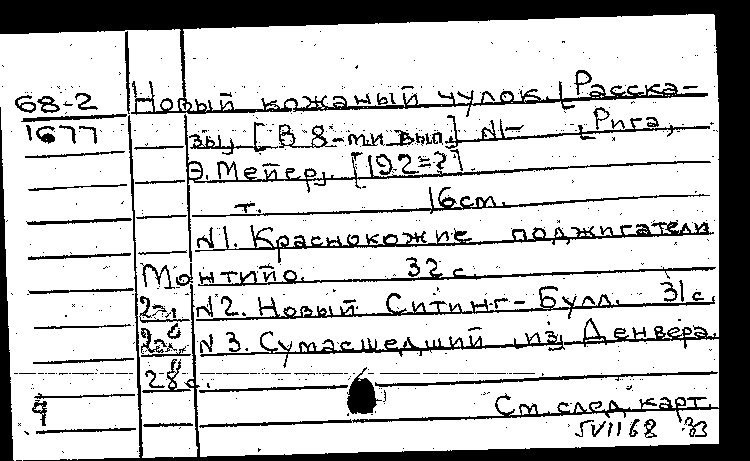 68-2 Новый кожаный чулок. [Расска-
1677 зы]. [В 8-ми вып.] №1- [Рига,
Э. Мейер]. [192=?].
т. 16 см.
№1. Краснокожие поджигатели
Монтийо. 32 с.
№2. Новый Ситинг-Булл. 31 с.
№3. Сумасшедший [из] Денвера.
28 с.
4 См. след. карт.
5VII68